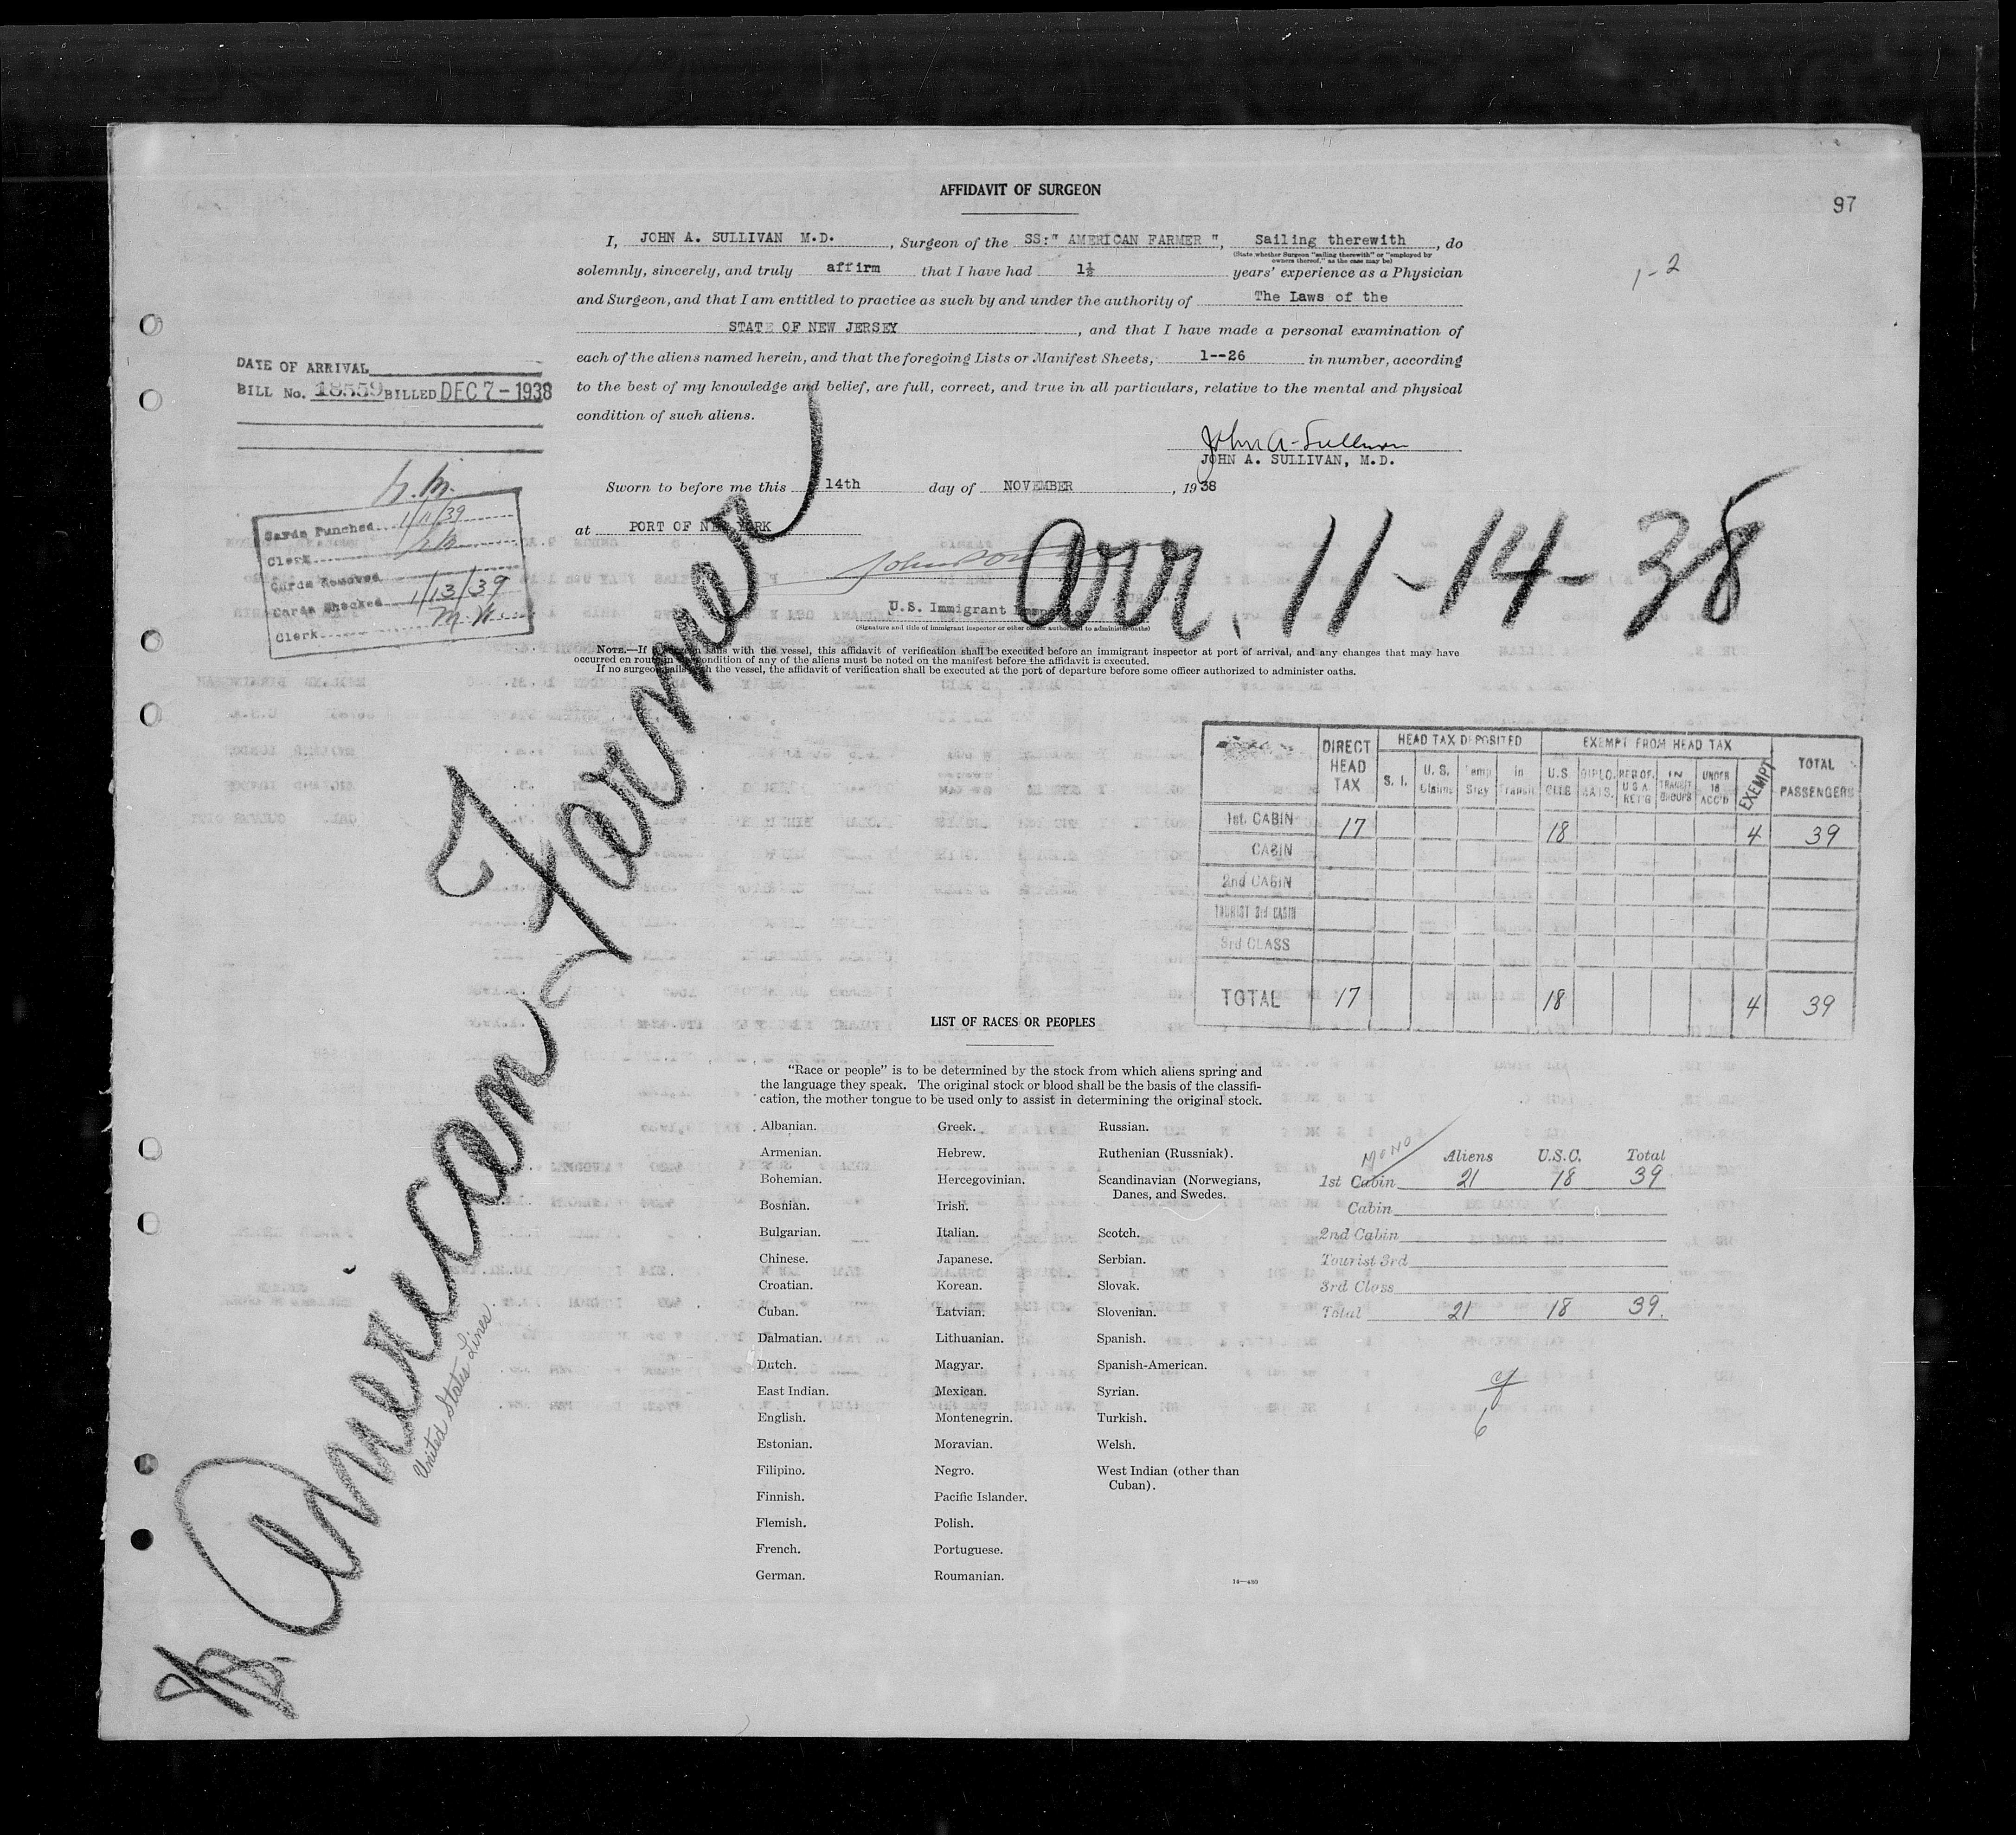 AFFIDAVIT OF SURGEON
97
I, JOHN A. SULLIVAN M.D. , Surgeon of the SS:" AMERICAN FARMER ", Sailing therewith , do
(State whether Surgeon "sailing therewith" or "employed by
owners thereof," as the case may be)
solemnly, sincerely, and truly affirm that I have had 1½ years' experience as a Physician
1-2
and Surgeon, and that I am entitled to practice as such by and under the authority of The Laws of the
STATE OF NEW JERSEY , and that I have made a personal examination of
each of the aliens named herein, and that the foregoing Lists or Manifest Sheets, 1--26 in number, according
to the best of my knowledge and belief, are full, correct, and true in all particulars, relative to the mental and physical
condition of such aliens.
DATE OF ARRIVAL
BILL No. 18559 BILLED DEC 7 - 1938
John A. Sullivan
JOHN A. SULLIVAN, M.D.
Sworn to before me this 14th day of NOVEMBER , 1938
at PORT OF NEW YORK
Cards Punched 1/11/39
Clerk
Cards Removed
Cards Checked 1/13/39
Clerk
Arr. 11-14-38
U.S. Immigrant Inspector
(Signature and title of immigrant inspector or other officer authorized to administer oaths)
NOTE.—If surgeon sails with the vessel, this affidavit of verification shall be executed before an immigrant inspector at port of arrival, and any changes that may have
occurred en route in condition of any of the aliens must be noted on the manifest before the affidavit is executed.
If no surgeon sails with the vessel, the affidavit of verification shall be executed at the port of departure before some officer authorized to administer oaths.
American Farmer
United States Lines
DIRECT HEAD TAX HEAD TAX DEPOSITED EXEMPT FROM HEAD TAX TOTAL PASSENGERS
S. I. U. S. Claims Temp Stay In Transit U.S. CITS DIPLOMATS. RES OF U S A RET'G IN TRANSIT GROUPS UNDER 16 ACC'D EXEMPT
1st. CABIN 17 18 4 39
CABIN
2nd CABIN
TOURIST 3rd CABIN
3rd CLASS
TOTAL 17 18 4 39
LIST OF RACES OR PEOPLES
"Race or people" is to be determined by the stock from which aliens spring and
the language they speak. The original stock or blood shall be the basis of the classifi-
cation, the mother tongue to be used only to assist in determining the original stock.
Albanian.
Armenian.
Bohemian.
Bosnian.
Bulgarian.
Chinese.
Croatian.
Cuban.
Dalmatian.
Dutch.
East Indian.
English.
Estonian.
Filipino.
Finnish.
Flemish.
French.
German.
Greek.
Hebrew.
Hercegovinian.
Irish.
Italian.
Japanese.
Korean.
Latvian.
Lithuanian.
Magyar.
Mexican.
Montenegrin.
Moravian.
Negro.
Pacific Islander.
Polish.
Portuguese.
Roumanian.
Russian.
Ruthenian (Russniak).
Scandinavian (Norwegians,
Danes, and Swedes.
Scotch.
Serbian.
Slovak.
Slovenian.
Spanish.
Spanish-American.
Syrian.
Turkish.
Welsh.
West Indian (other than
Cuban).
14—480
Aliens U.S.C. Total
1st Cabin 21 18 39
Cabin
2nd Cabin
Tourist 3rd
3rd Class
Total 21 18 39
6